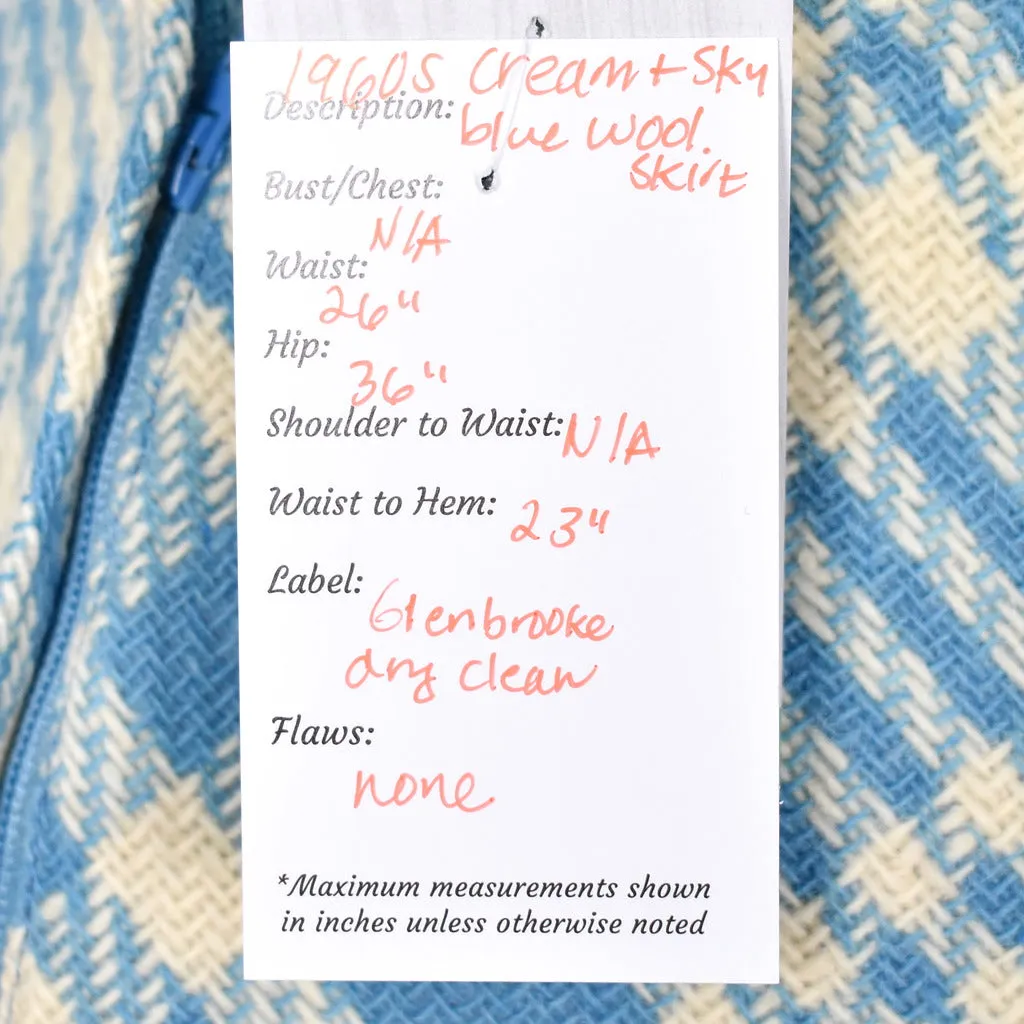 Description: 1960s Cream + Sky
blue wool.
skirt
Bust/Chest:
N/A
Waist:
26"
Hip:
36"
Shoulder to Waist: N/A
Waist to Hem: 23"
Label:
Glenbrooke
dry clean
Flaws:
none
*Maximum measurements shown
in inches unless otherwise noted